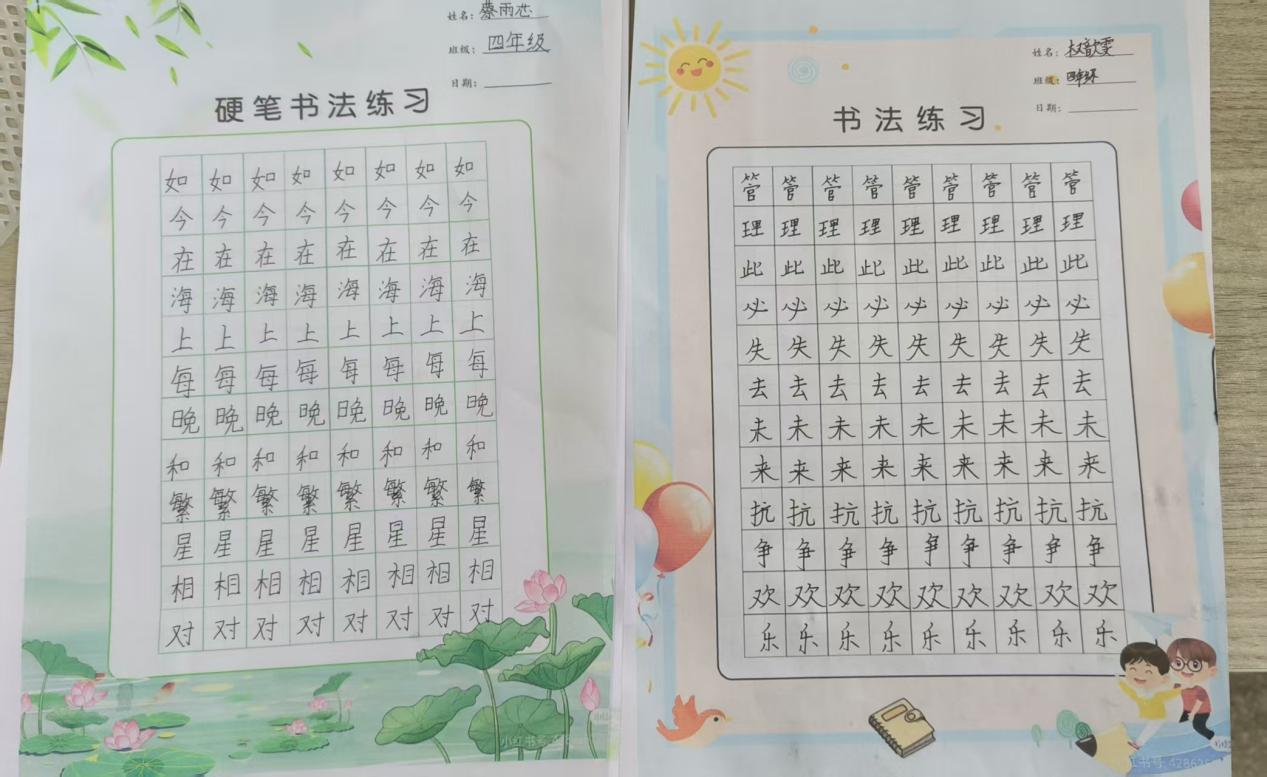 姓名：蔡雨芯
班级：四年级
日期：
硬笔书法练习
如如如如如如如如
今今今今今今今今
在在在在在在在在
海海海海海海海海
上上上上上上上上
每每每每每每每每
晚晚晚晚晚晚晚晚
和和和和和和和和
繁繁繁繁繁繁繁繁
星星星星星星星星
相相相相相相相相
对对对对对对对对
小红书号
姓名：
班级：
日期：
书法练习
管管管管管管管管管
理理理理理理理理理
此此此此此此此此此
必必必必必必必必必
失失失失失失失失失
去去去去去去去去去
未未未未未未未未未
来来来来来来来来来
抗抗抗抗抗抗抗抗抗
争争争争争争争争争
欢欢欢欢欢欢欢欢欢
乐乐乐乐乐乐乐乐乐
小红书号